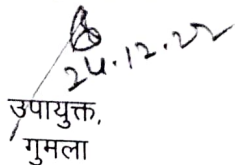 24.12.22
उपायुक्त,
गुमला